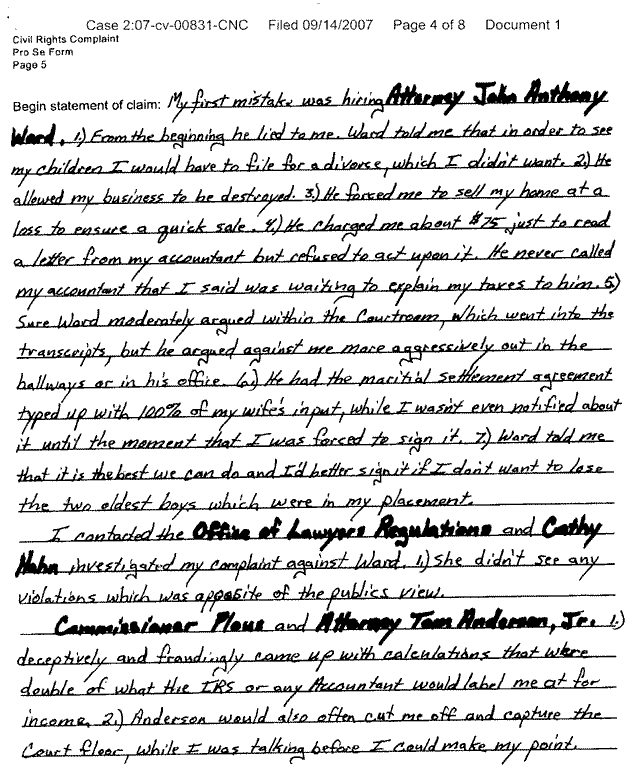 Case 2:07-cv-00831-CNC Filed 09/14/2007 Page 4 of 8 Document 1
Civil Rights Complaint
Pro Se Form
Page 5
Begin statement of claim: My first mistake was hiring Attorney John Anthony
Ward. 1.) From the beginning he lied to me. Ward told me that in order to see
my children I would have to file for a divorse, which I didn't want. 2.) He
allowed my business to be destroyed. 3.) He forced me to sell my home at a
loss to ensure a quick sale. 4.) He charged me about $75 just to read
a letter from my accountant but refused to act upon it. He never called
my accountant that I said was waiting to explain my taxes to him. 5.)
Sure Ward moderately argued within the Courtroom, which went into the
transcripts, but he argued against me more aggressively out in the
hallways or in his office. 6.) He had the maritial settlement agreement
typed up with 100% of my wife's input, while I wasn't even notified about
it until the moment that I was forced to sign it. 7.) Ward told me
that it is the best we can do and I'd better sign it if I don't want to lose
the two oldest boys which were in my placement.
I contacted the Office of Lawyers Regulations and Cathy
Hahn investigated my complaint against Ward. 1.) She didn't see any
violations which was apposite of the publics view.
Commissioner Plous and Attorney Tom Anderson, Jr. 1.)
deceptively and fraudingly came up with calculations that were
double of what the IRS or any Accountant would label me at for
income. 2.) Anderson would also often cut me off and capture the
Court floor, while I was talking before I could make my point.